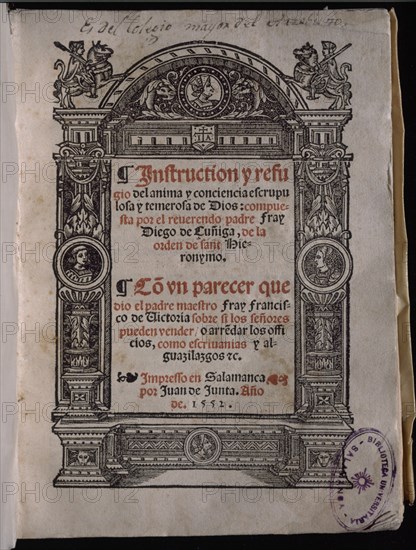 Es del Colegio mayor del Arzobispo.
¶ Instruction y refu
gio del anima y conciencia escrupu
losa y temerosa de Dios: compue-
sta por el reuerendo padre Fray
Diego de Cuñiga, de la
orden de sant Hie-
ronymo.
¶ Cõ vn parecer que
dio el padre maestro Fray Francis-
co de Victoria sobre si los señores
pueden vender / o arrẽdar los offi
cios, como escriuanias y al-
guazilazgos &c.
Impresso en Salamanca
por Juan de Junta. Año
de. 1552.
BIBLIOTECA UNIVERSITARIA
SALAMANCA
PHOTO12